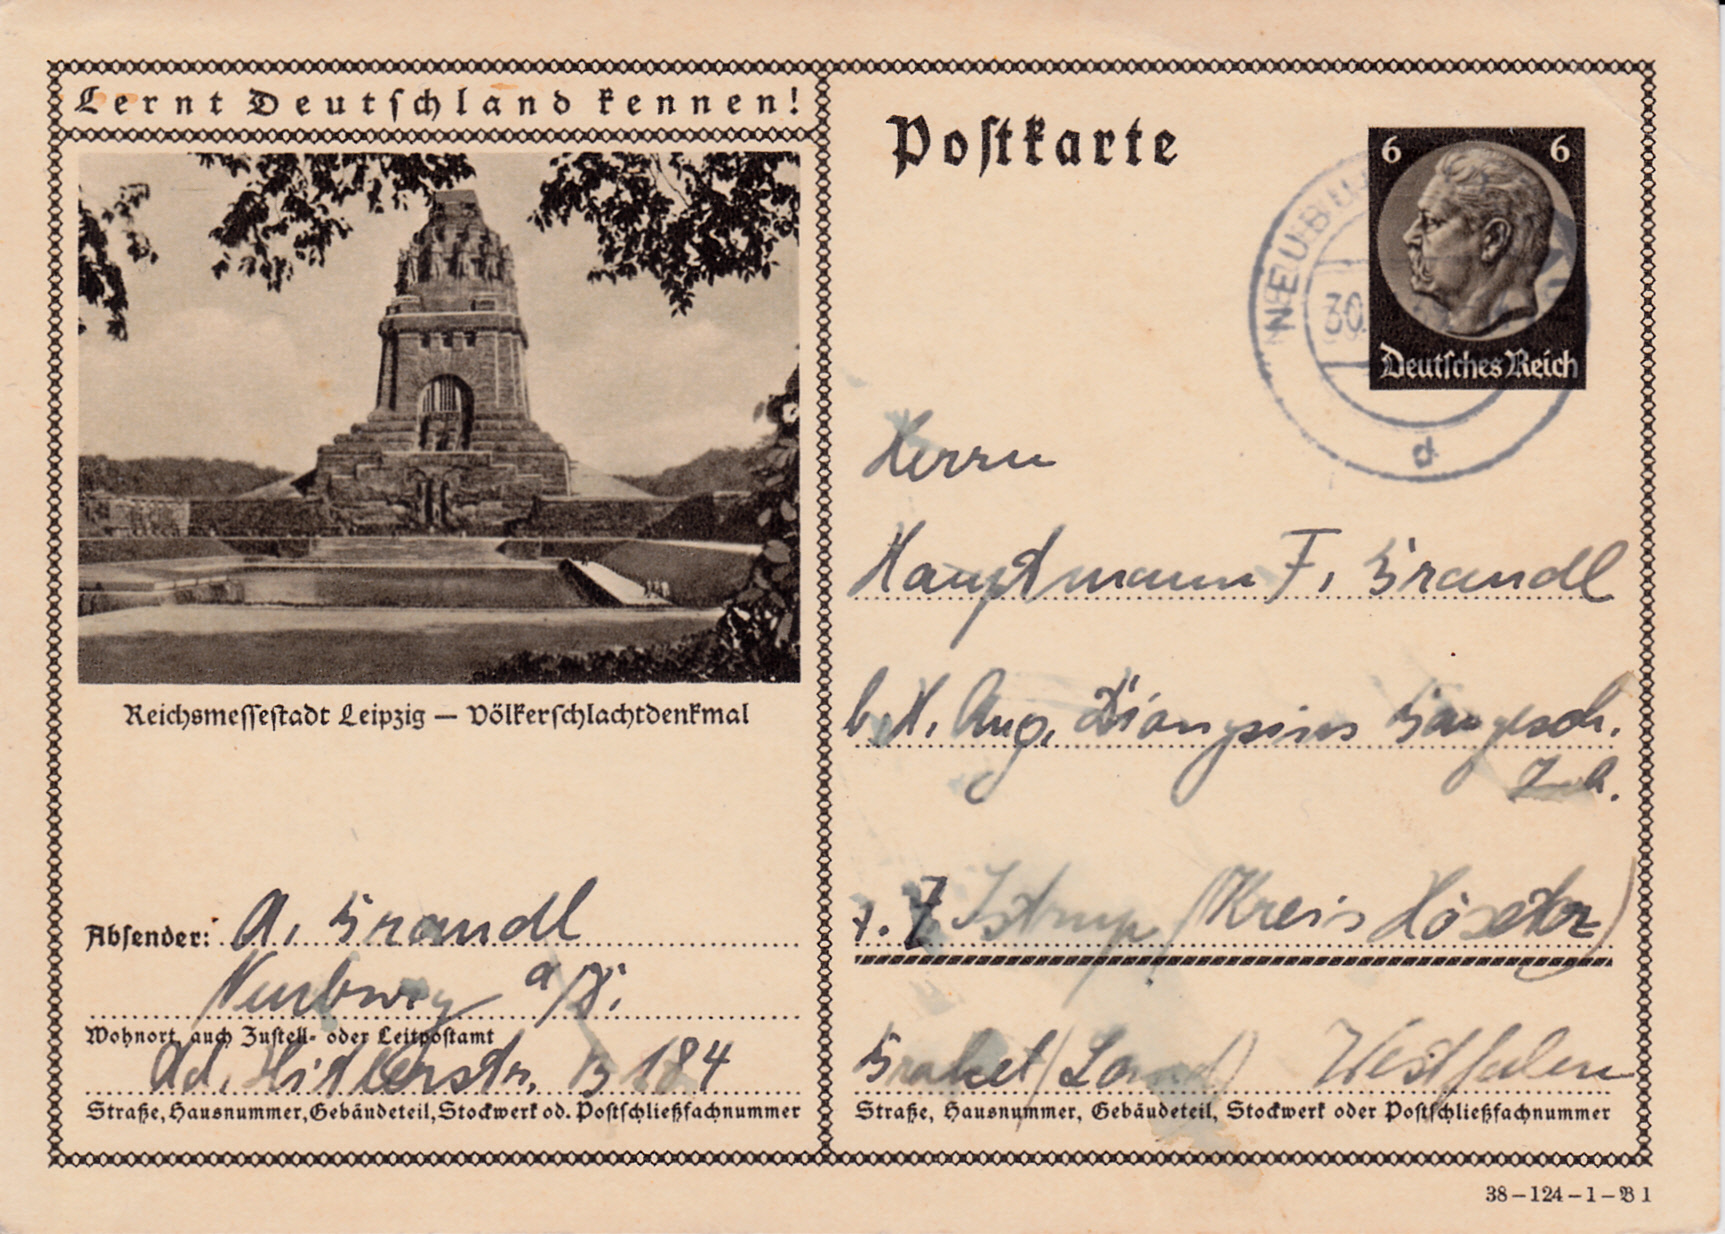 Lernt Deutschland kennen!
Reichsmessestadt Leipzig — Völkerschlachtdenkmal
Absender: A. Brandl
a/D.
Wohnort, auch Zustell- oder Leitpostamt
Ad. Hitlerstr. B 184
Straße, Hausnummer, Gebäudeteil, Stockwerk od. Postschließfachnummer
Postkarte
6 6
Deutsches Reich
NEUBU AU
30.
d
Herrn
Hauptmann F. Brandl
b. H. Aug. Dionysius
z. Z. Istrup (Kreis Höxter)
Brakel (Land) Westfalen
Straße, Hausnummer, Gebäudeteil, Stockwerk oder Postschließfachnummer
38–124–1–B 1